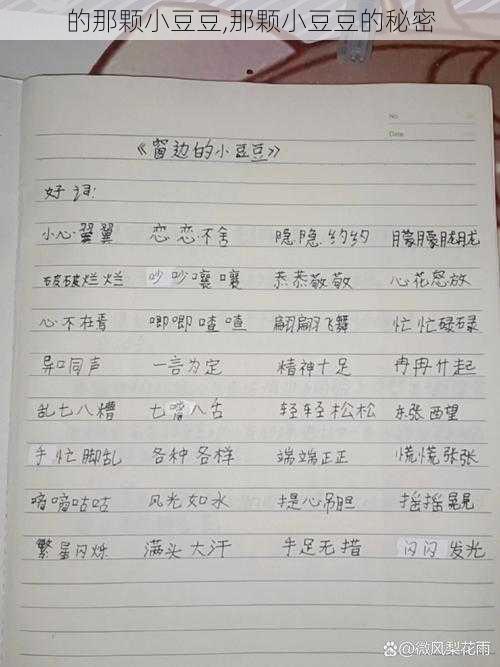 的那颗小豆豆,那颗小豆豆的秘密
No
Date
《窗边的小豆豆》
好词:
小心翼翼 恋恋不舍 隐隐约约 朦朦胧胧
破破烂烂 吵吵嚷嚷 恭恭敬敬 心花怒放
心不在焉 唧唧喳喳 翩翩飞舞 忙忙碌碌
异口同声 一言为定 精神十足 冉冉升起
乱七八糟 七嘴八舌 轻轻松松 东张西望
手忙脚乱 各种各样 端端正正 慌慌张张
嘀嘀咕咕 风光如水 提心吊胆 摇摇晃晃
繁星闪烁 满头大汗 手足无措 闪闪发光
@微风梨花雨